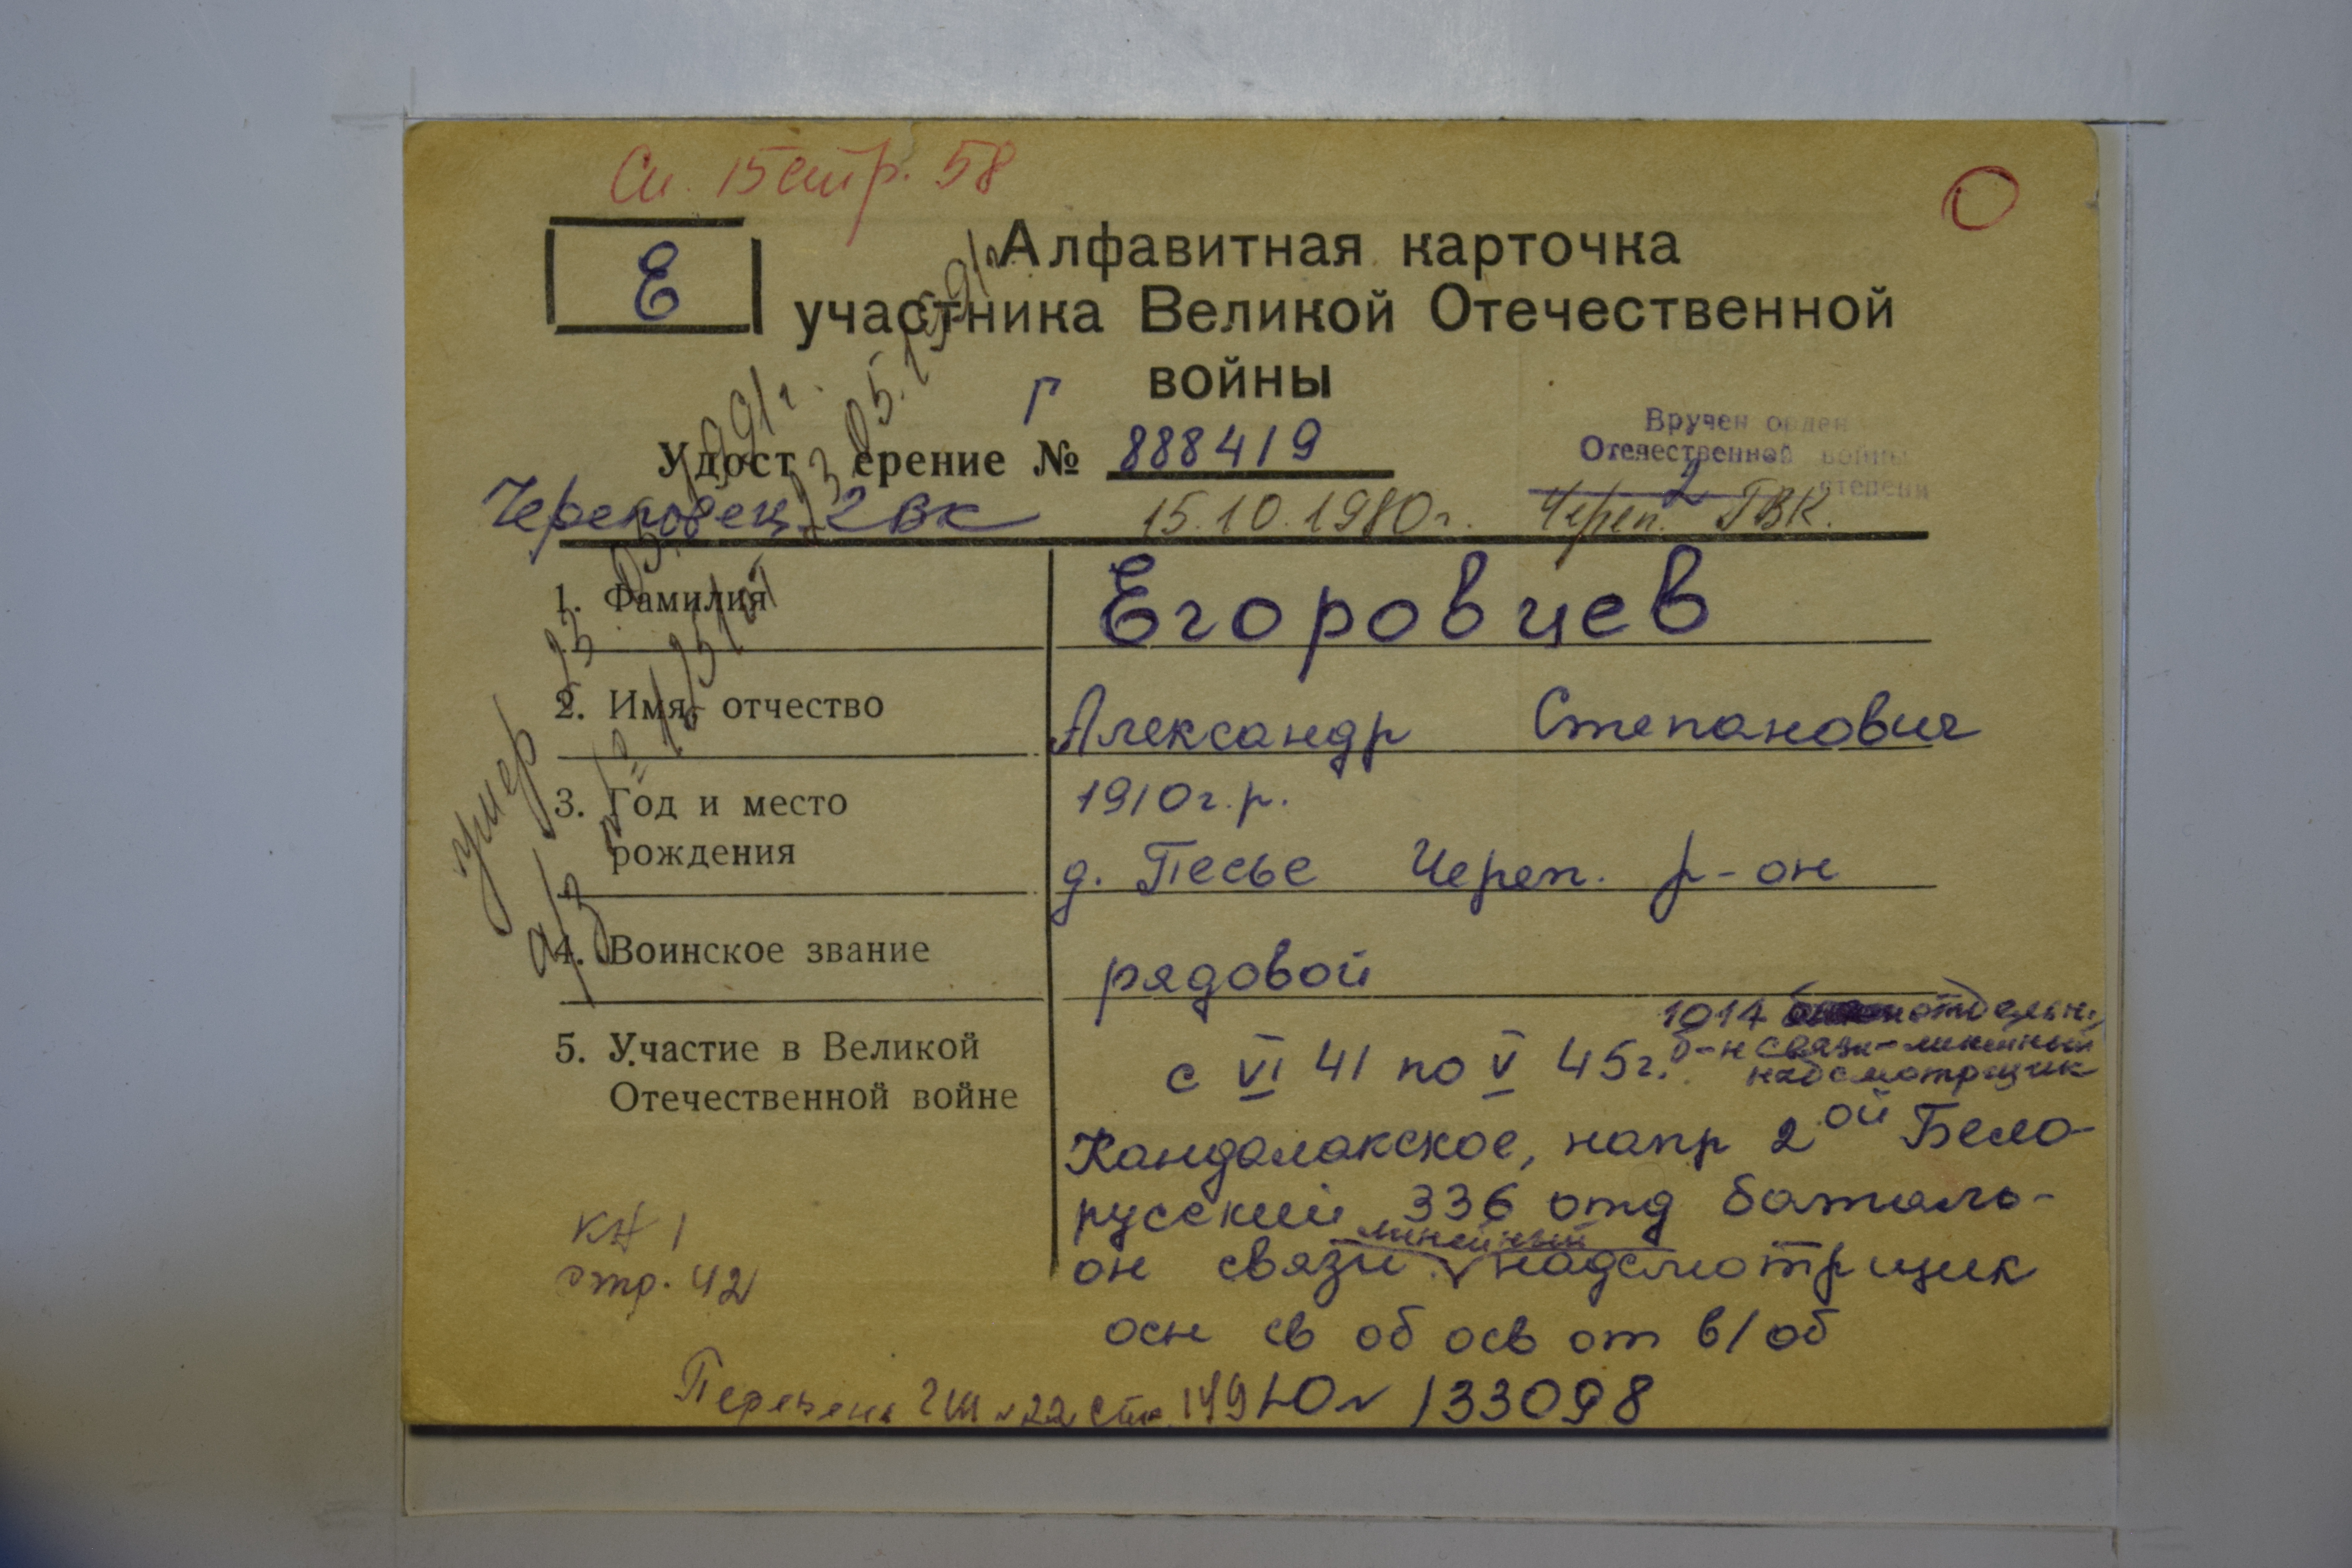 Сп. 15 стр. 58
Е
Алфавитная карточка
участника Великой Отечественной
войны
Г
Удост ерение № 888419
Вручен орден
Отечественной войны
2 степени
Череповец. 2 вк 15.10.1980г. Череп. ГВК.
1. Фамилия
Егоровцев
2. Имя, отчество
Александр Степанович
3. Год и место
рождения
1910г.р.
д. Песье Череп. р-он
4. Воинское звание
рядовой
5. Участие в Великой
Отечественной войне
1014 отдельн.
б-н связи-линейный
надсмотрщик
с VI 41 по V 45г.
Кандалакское, напр 2ой Бело-
русский 336 отд баталь-
он связи линейный надсмотрщик
осн св об осв от в/об
умер 23 05. 1991г.
а/з 23 05. 1991г.
стр. 42
149 Ю № 133098